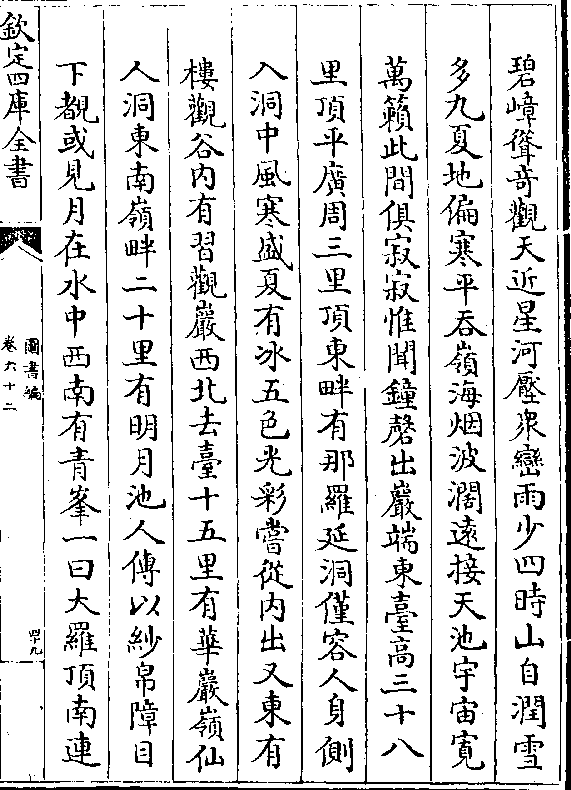 碧嶂聳奇觀天近星河壓衆巒雨少四時山自潤雪
多九夏地偏寒平吞嶺海烟波濶遠接天池宇宙寛
萬籟此間俱寂寂惟聞鐘磬出巖端東臺高三十八
里頂平廣周三里頂東畔有那羅延洞僅容人身側
入洞中風寒盛夏有冰五色光彩嘗從内出又東有
樓觀谷内有習觀巖西北去臺十五里有華嚴嶺仙
人洞東南嶺畔二十里有明月池人傳以紗帛障目
下覩或見月在水中西南有青峯一曰大羅頂南連
欽定四庫全書
圖書編
卷六十二
四十九